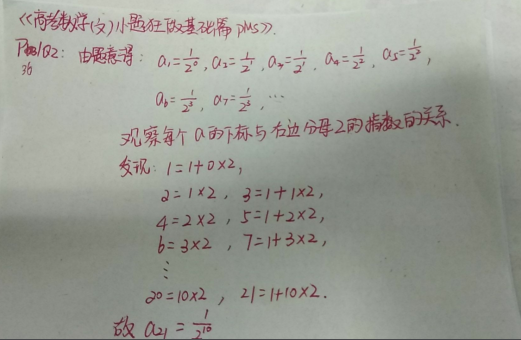 《高考数学(文)小题狂做基础篇 plus》.
P36/Q2: 由题意得: a₁=1/2⁰, a₂=1/2¹, a₃=1/2¹, a₄=1/2², a₅=1/2²,
a₆=1/2³, a₇=1/2³, …
观察每个a的下标与右边分母2的指数的关系.
发现: 1=1+0×2,
2=1×2, 3=1+1×2,
4=2×2, 5=1+2×2,
6=3×2, 7=1+3×2,
⋮
20=10×2, 21=1+10×2.
故 a₂₁=1/2¹⁰